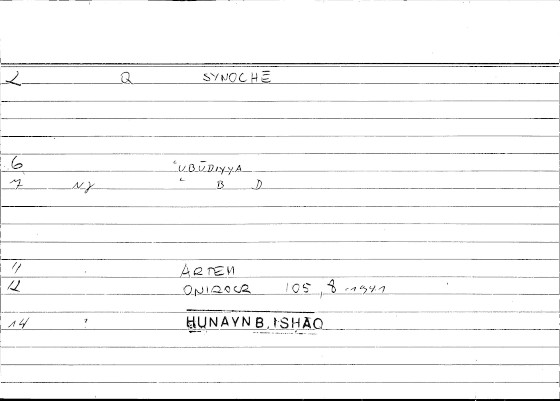 2 Q SYNOCHĒ
6 ʿUBŪDIYYA
7 NJ ʿ B D
11 ARTEM
12 ONIROCR 105,8-1941
14 HUNAYN B. ISHAQ